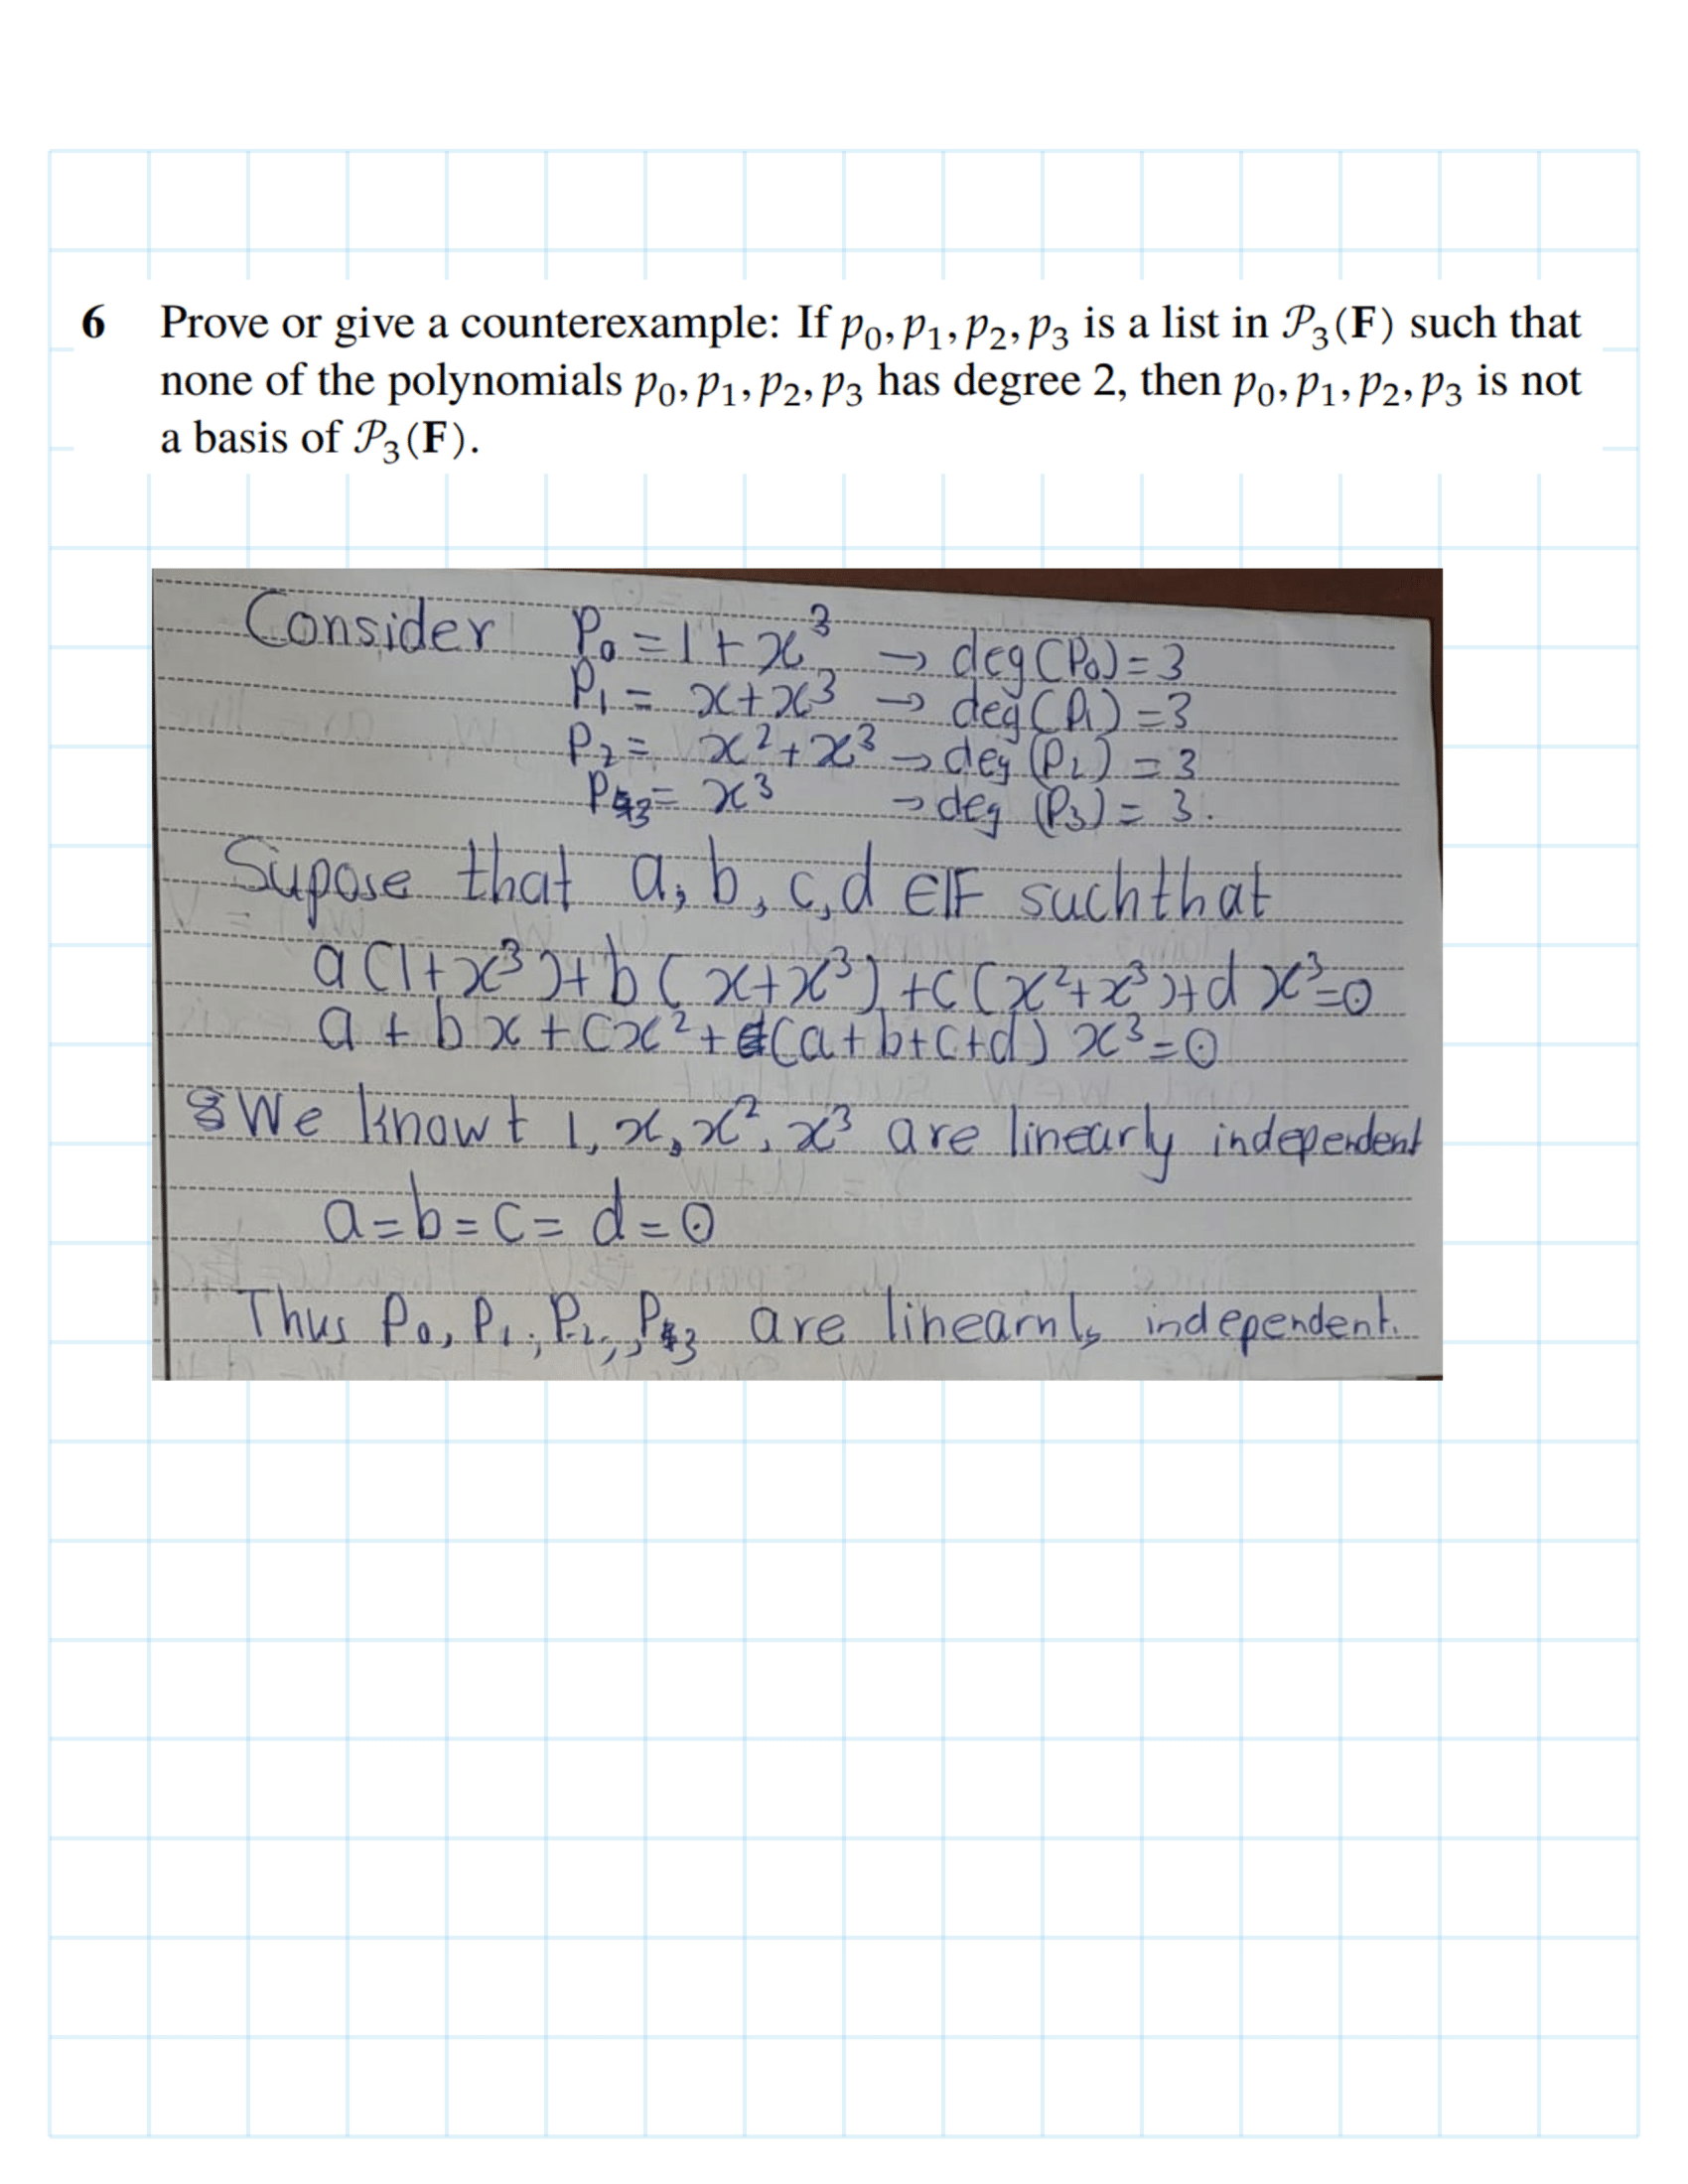 6 Prove or give a counterexample: If p₀, p₁, p₂, p₃ is a list in 𝒫₃(F) such that
none of the polynomials p₀, p₁, p₂, p₃ has degree 2, then p₀, p₁, p₂, p₃ is not
a basis of 𝒫₃(F).
Consider P₀ = 1 + x³ → deg(P₀) = 3
P₁ = x + x³ → deg(P₁) = 3
P₂ = x² + x³ → deg(P₂) = 3
P₃ = x³ → deg (P₃) = 3.
Supose that a, b, c, d ∈ 𝔽 such that
a(1 + x³) + b(x + x³) + c(x² + x³) + d x³ = 0
a + bx + cx² + (a + b + c + d) x³ = 0
We know t 1, x, x², x³ are linearly independent
a = b = c = d = 0
Thus P₀, P₁, P₂, P₃ are linearnly independent.